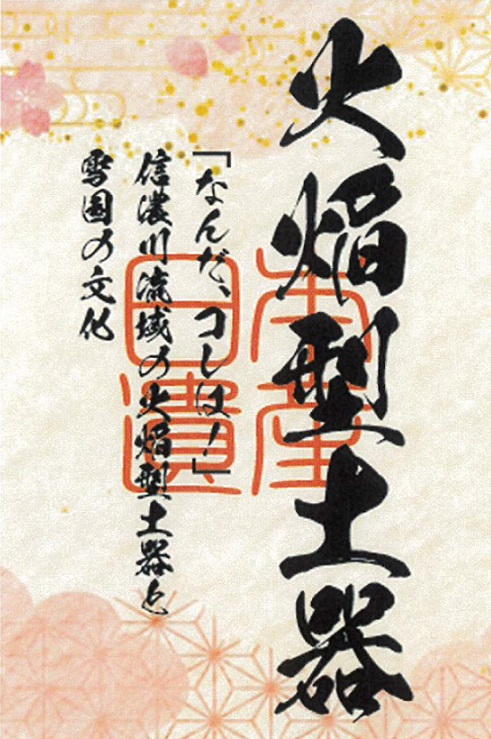 火焔型土器
「なんだ、コレは!」
信濃川流域の火焔型土器と
雪国の文化
日本
遺産